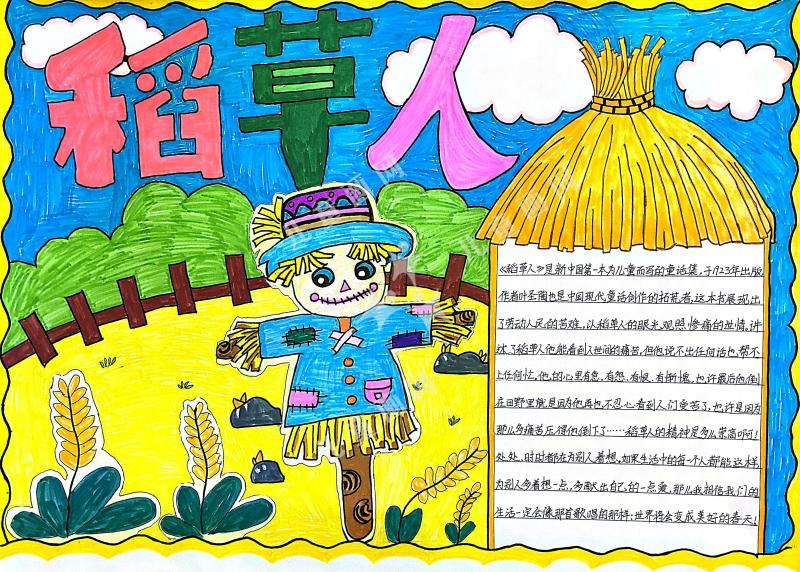 稻草人
《稻草人》是新中国第一本为儿童而写的童话集,于1923年出版
作者叶圣陶也是中国现代童话创作的拓荒者,这本书展现出
了劳动人民的苦难,以稻草人的眼光观照惨痛的世情,讲
述了稻草人他能看到人世间的痛苦,但他说不出任何话也帮不
上任何忙,他的心里有急、有怨、有恨、有惭愧,也许最后他倒
在田野里就是因为他再也不忍心看到人们受苦了,也许是因为
那么多痛苦压得他倒下了……稻草人的精神是多么崇高啊!
处处、时时都在为别人着想,如果生活中的每一个人都能这样,
为别人多着想一点,多献出自己的一点爱,那么我相信我们的
生活一定会像那首歌唱的那样:世界将会变成美好的春天!